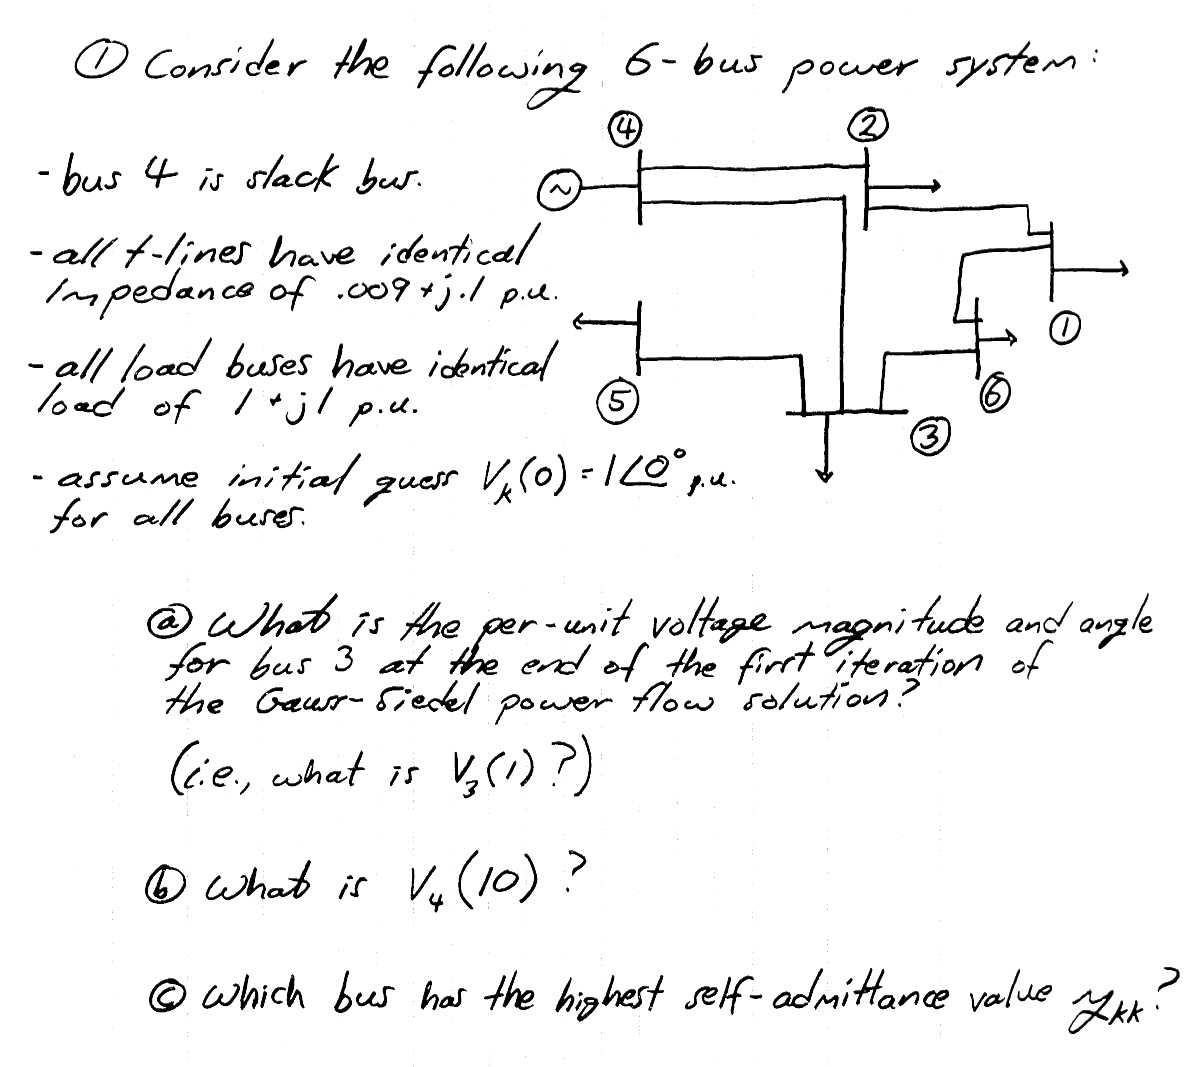 ① Consider the following 6-bus power system:
④ ②
- bus 4 is slack bus.
~
- all t-lines have identical
impedance of .009 + j.1 p.u.
①
- all load buses have identical
load of 1 + j1 p.u.
⑤ ⑥
③
- assume initial guess Vk(0) = 1∠0° p.u.
for all buses.
ⓐ What is the per-unit voltage magnitude and angle
for bus 3 at the end of the first iteration of
the Gauss-Siedel power flow solution?
(i.e., what is V3(1)?)
ⓑ What is V4(10)?
ⓒ Which bus has the highest self-admittance value ykk?